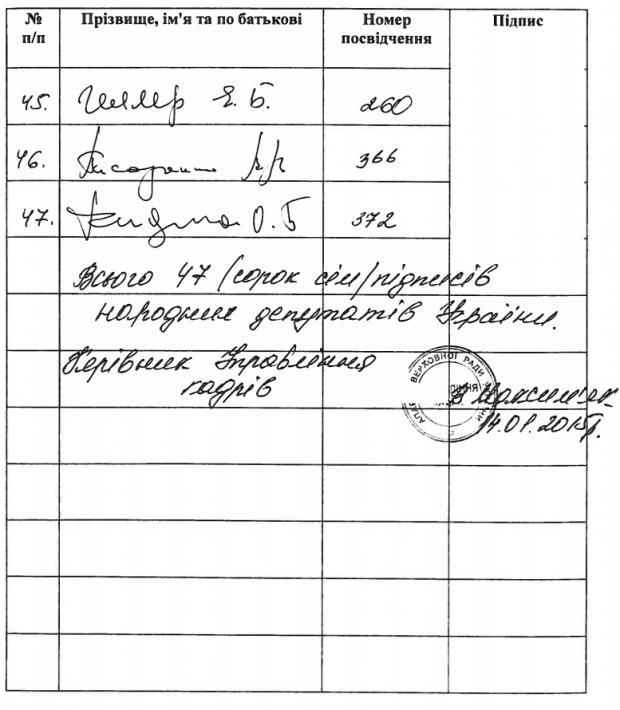 № п/п Прізвище, ім'я та по батькові Номер посвідчення Підпис
45. Геллер Є. Б. 260
46. 366
47. О. Б 372
Всього 47 /сорок сім/ підписів
народних депутатів України.
Керівник Управління
кадрів
ВЕРХОВНОЇ РАДИ
В Максимюк
14.01.2015р.